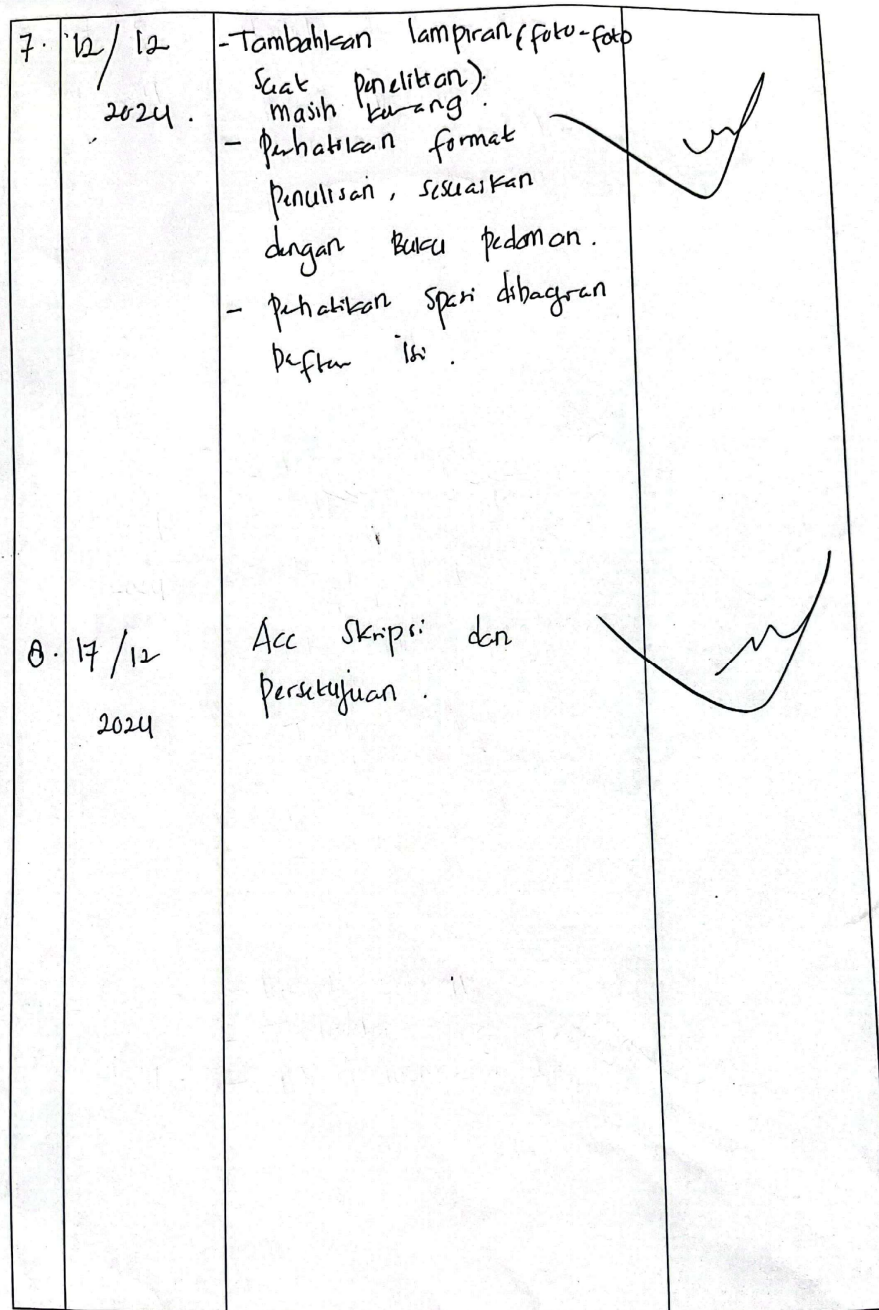 7. 12/12 -Tambahkan lampiran (foto-foto
saat penelitian).
2024. masih kurang.
- Perhatikan format
penulisan, sesuaikan
dengan Buku pedoman.
- perhatikan spasi dibagian
Daftar isi.
8. 17/12 Acc Skripsi dan
persetujuan.
2024